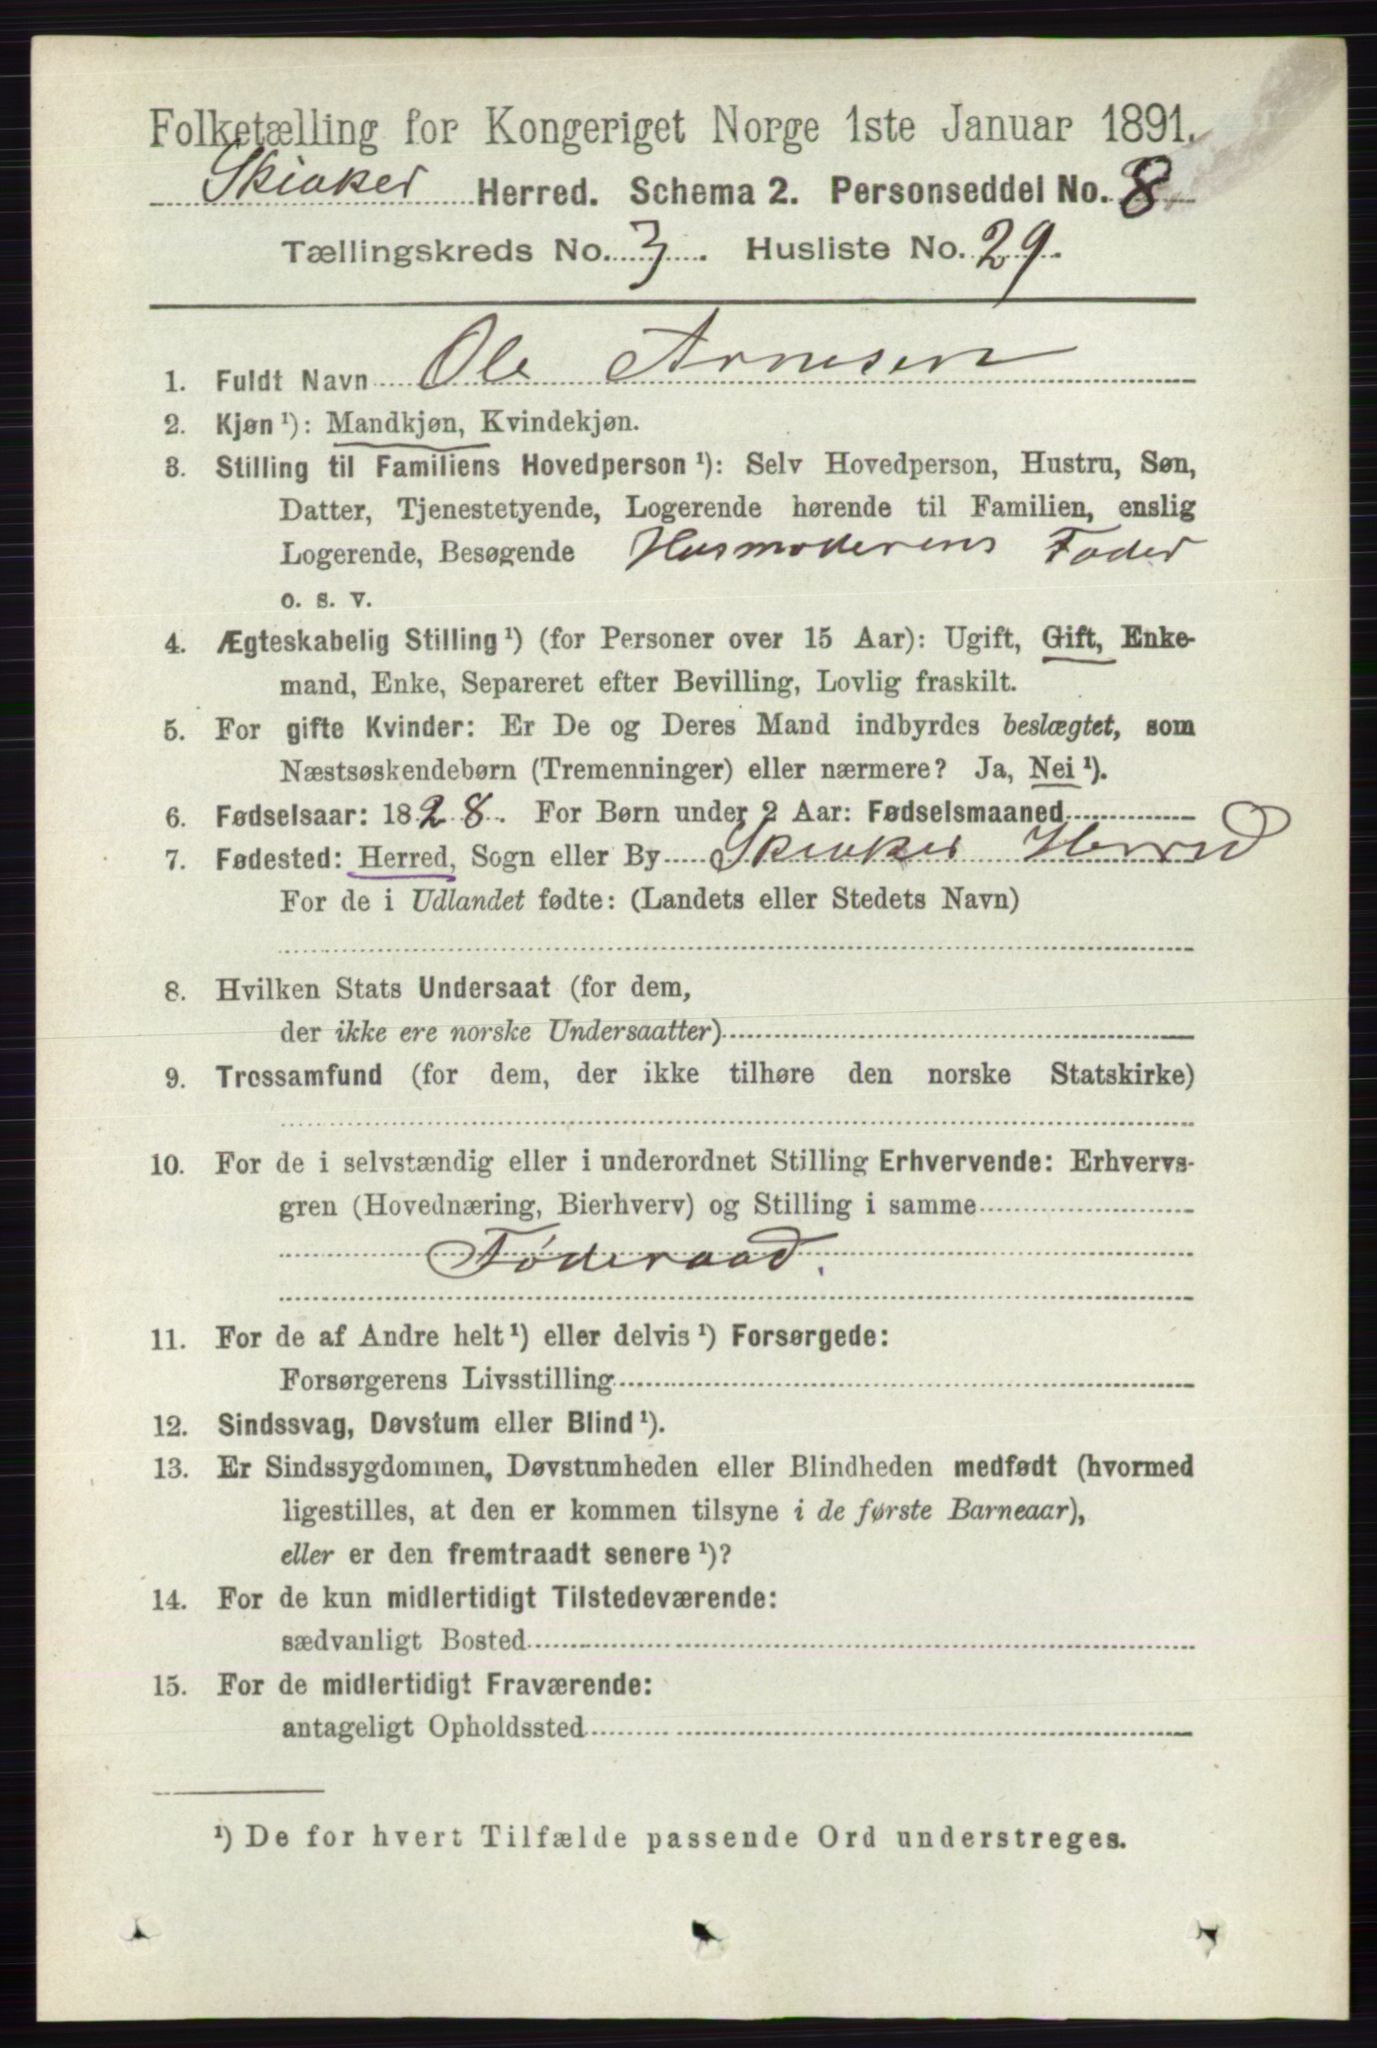 Folketælling for Kongeriget Norge 1ste Januar 1891.
Skiaker Herred. Schema 2. Personseddel No. 8
Tællingskreds No. 3. Husliste No. 29.
1. Fuldt Navn Ole Arnesen
2. Kjøn ¹): Mandkjøn, Kvindekjøn.
3. Stilling til Familiens Hovedperson ¹): Selv Hovedperson, Hustru, Søn,
Datter, Tjenestetyende, Logerende hørende til Familien, enslig
Logerende, Besøgende Husmoderens Fader
o. s. v.
4. Ægteskabelig Stilling ¹) (for Personer over 15 Aar): Ugift, Gift, Enke-
mand, Enke, Separeret efter Bevilling, Lovlig fraskilt.
5. For gifte Kvinder: Er De og Deres Mand indbyrdes beslægtet, som
Næstsøskendebørn (Tremenninger) eller nærmere? Ja, Nei ¹).
6. Fødselsaar: 1828. For Børn under 2 Aar: Fødselsmaaned
7. Fødested: Herred, Sogn eller By Skiaker Herred
For de i Udlandet fødte: (Landets eller Stedets Navn)
8. Hvilken Stats Undersaat (for dem,
der ikke ere norske Undersaatter)
9. Trossamfund (for dem, der ikke tilhøre den norske Statskirke)
10. For de i selvstændig eller i underordnet Stilling Erhvervende: Erhvervs-
gren (Hovednæring, Bierhverv) og Stilling i samme
Føderaad.
11. For de af Andre helt ¹) eller delvis ¹) Forsørgede:
Forsørgerens Livsstilling
12. Sindssvag, Døvstum eller Blind ¹).
13. Er Sindssygdommen, Døvstumheden eller Blindheden medfødt (hvormed
ligestilles, at den er kommen tilsyne i de første Barneaar),
eller er den fremtraadt senere ¹)?
14. For de kun midlertidigt Tilstedeværende:
sædvanligt Bosted
15. For de midlertidigt Fraværende:
antageligt Opholdssted
¹) De for hvert Tilfælde passende Ord understreges.